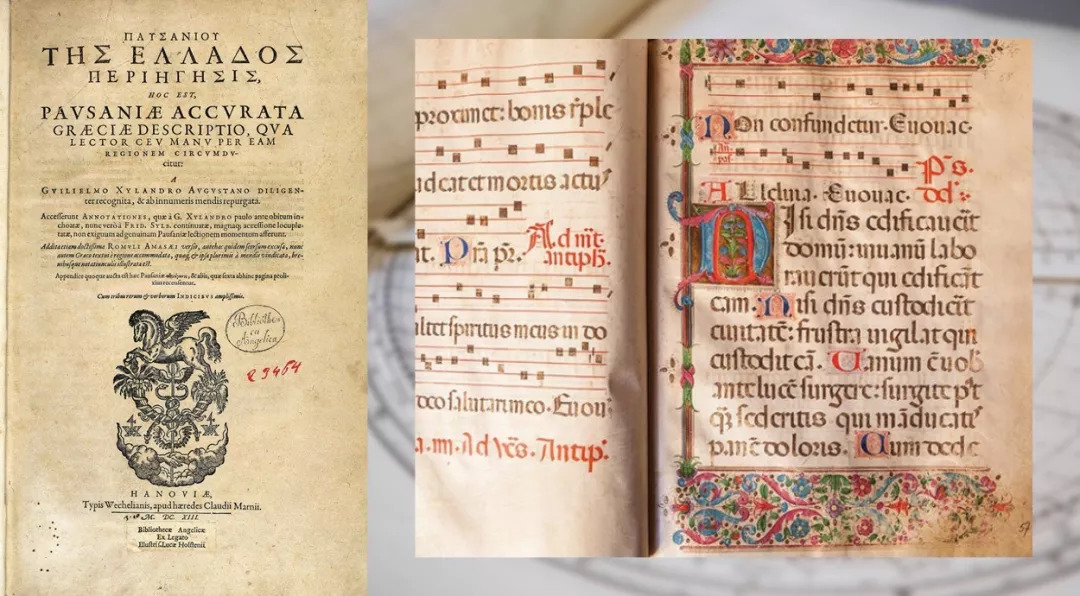 ΠΑΥΣΑΝΙΟΥ
ΤΗΣ ΕΛΛΑΔΟΣ
ΠΕΡΙΗΓΗΣΙΣ,
HOC EST,
PAVSANIÆ ACCVRATA
GRÆCIÆ DESCRIPTIO, QVA
LECTOR CEV MANV PER EAM
REGIONEM CIRCVMDV-
citur:
A
GVILIELMO XYLANDRO AVGVSTANO DILIGEN-
ter recognita, & ab innumeris mendis repurgata.
Accesserunt ANNOTATIONES, quæ à G. XYLANDRO paulo ante obitum in-
choatæ, nunc verò à FRID. SYLB. continuatæ, magnam accessione locuple-
tatæ, non exiguum ad genuinam Pausaniæ lectionem momentum afferunt.
Addita etiam doctissima ROMVLI AMASÆI versio, antehac quidem seorsum excusa, nunc
autem Græco textui è regione accommodata,
Appendix quoque aucta est hæc Pausaniæ & aliis, quæ sexta abhinc pagina
Cum tribus rerum & verborum INDICIBVS amplissimis.
Bibliothe-
cæ
Angelicæ
HANOVIÆ,
Typis Wechelianis, apud hæredes Claudii Marnii.
M. DC. XIII.
Bibliothecæ Angelicæ
Ex Legato
Illustriss. Lucæ Holstenii
proximet: bonis rĩple
ad cat et mortis actu
t. Pm̃ pr̃. Ad mt̃.
antiph.
ultet spiritus meus in do
deo salutari meo. Euou
a. nn. Ad vẽs. Antip.
Non confundetur. Euouae.
Ps.
Alleluia. Euouae.
Nisi dñs edificauerit
domũ: in uanũ labo
rauerũt qui edificãt
eam. Nisi dñs custodierit
ciuitatẽ: frustra uigilat qui
custodit eã. Uanum ẽ uob
ante lucẽ surgere: surgite p̃t
q̃ sederitis qui mãducatis
panẽ doloris. Cum dede